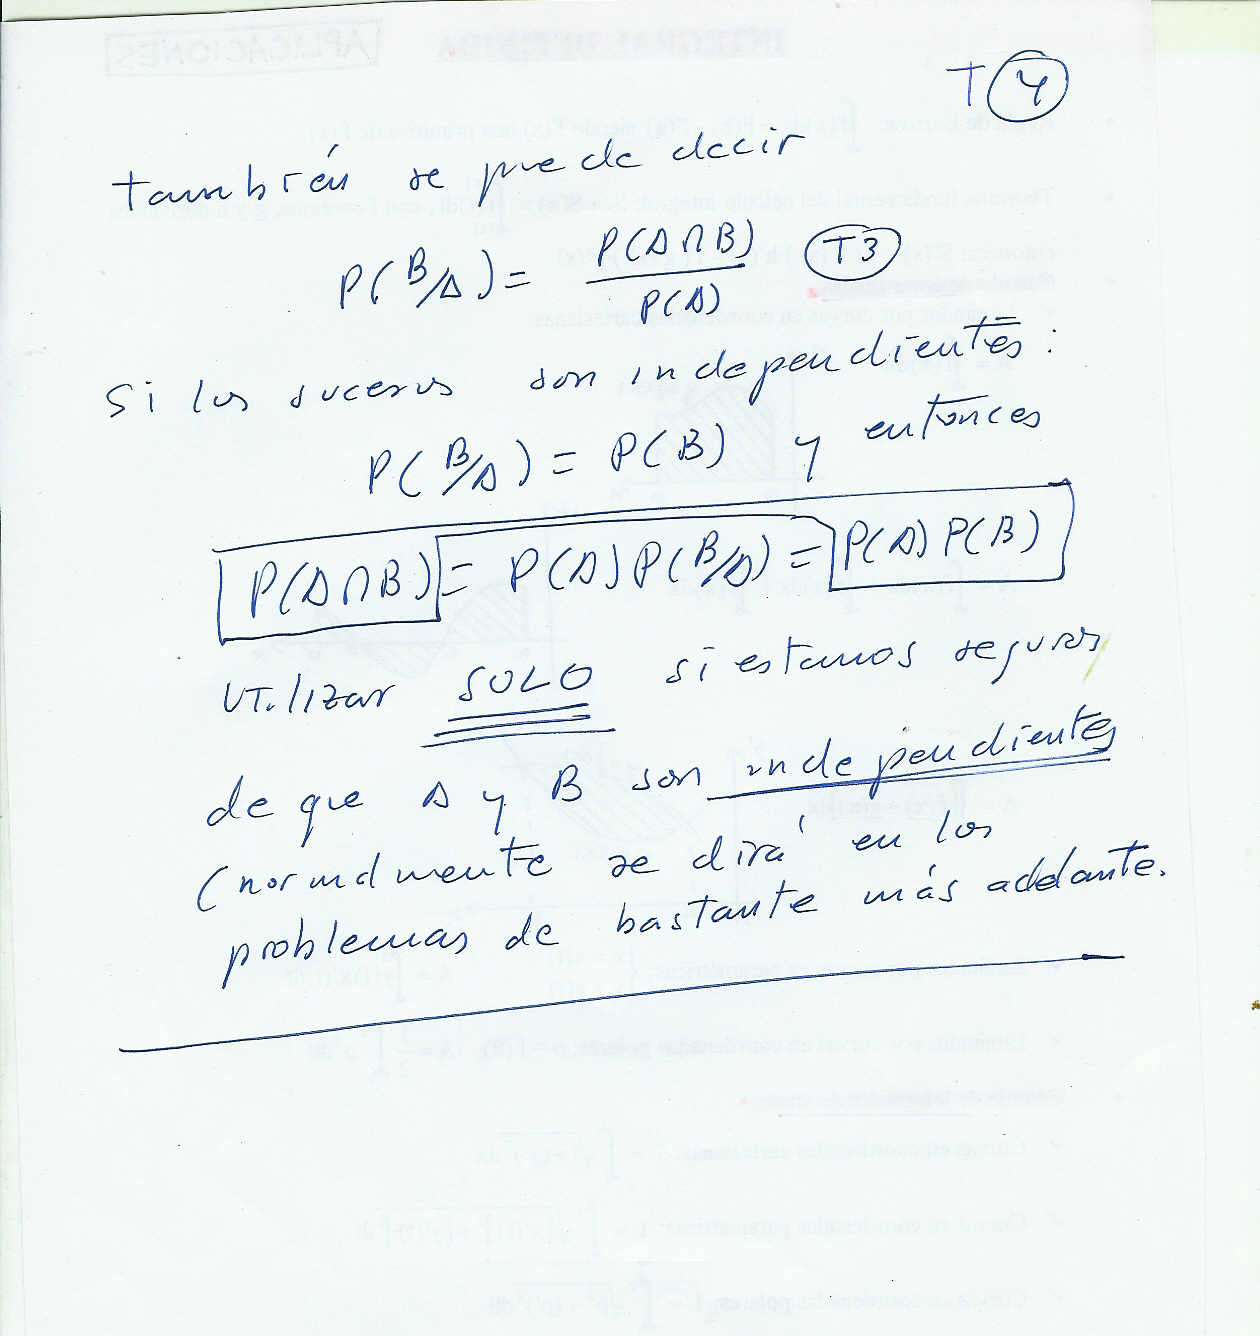 T 4
También se puede decir
P(B/A) = P(A∩B) / P(A) T3
Si los sucesos son independientes:
P(B/A) = P(B) y entonces
P(A∩B) = P(A) P(B/A) = P(A) P(B)
UTilizar SOLO si estamos seguros
de que A y B son independientes
(normalmente se dirá en los
problemas de bastante más adelante.